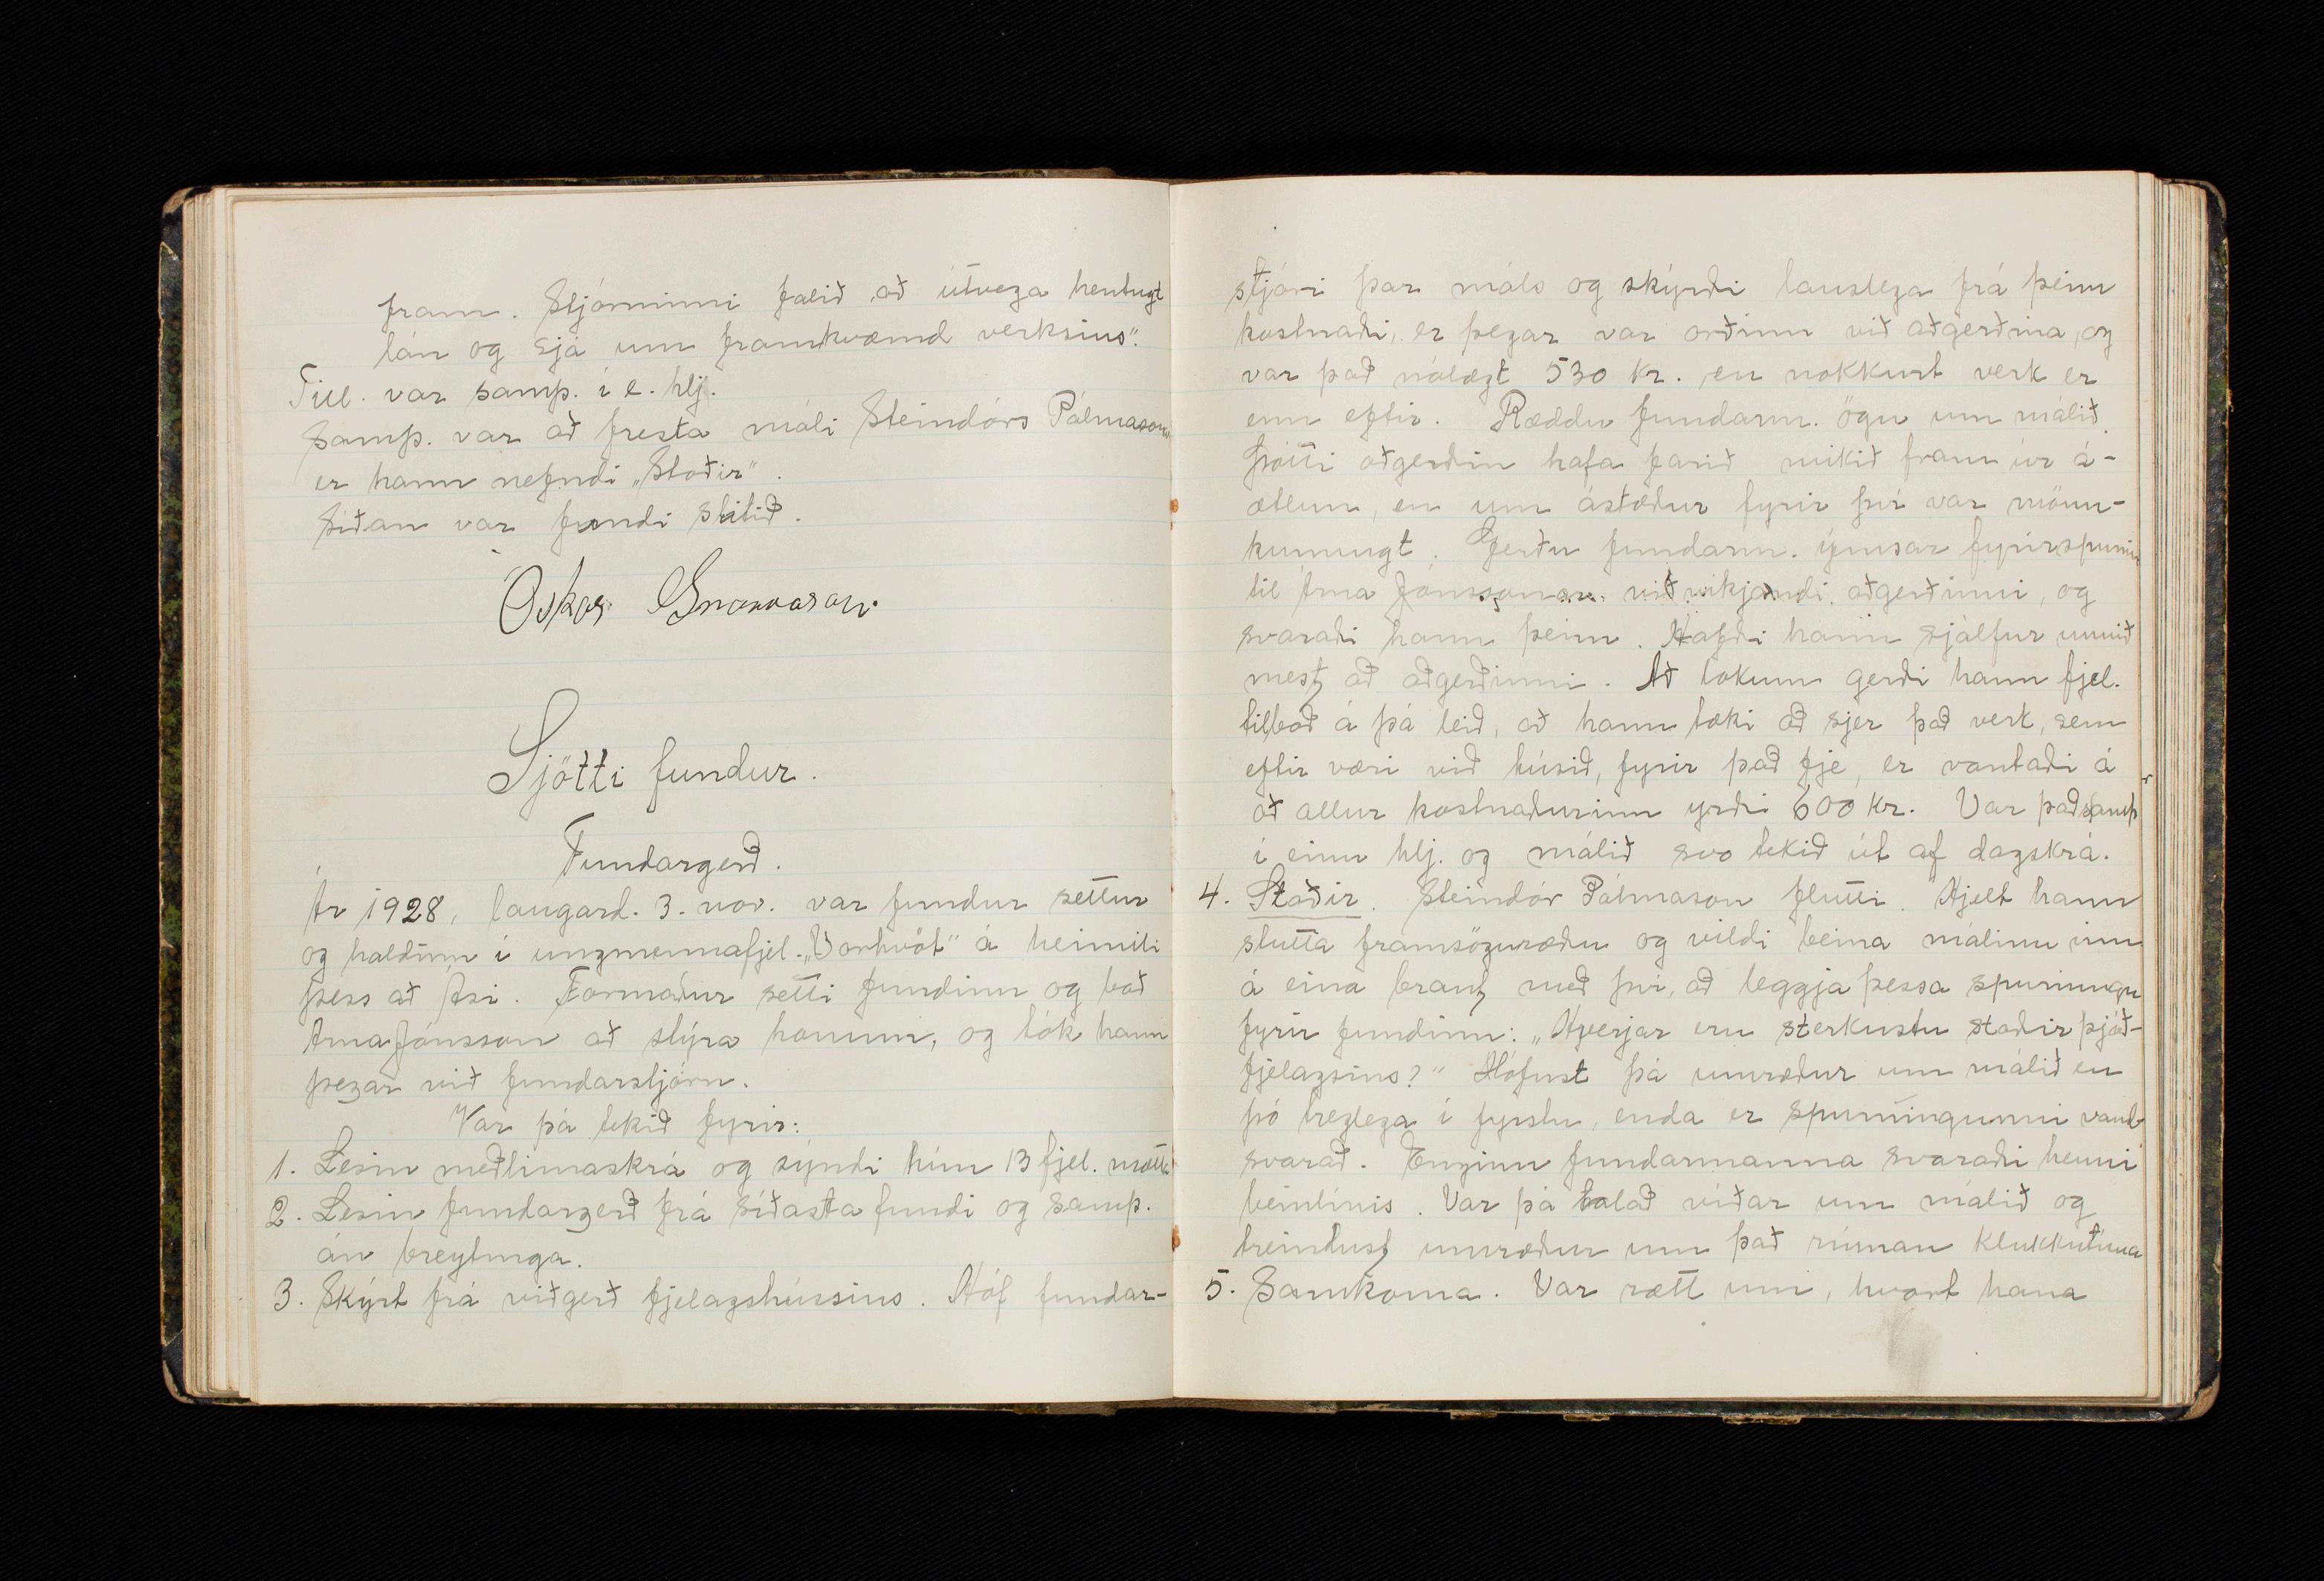 fram. Stjórninni falið að útvega hentugt
lán og sjá um framkvæmd verksins".
Till. var samþ. í e. hlj.
Samþ. var að fresta máli Steindórs Pálmasonar
er hann nefndi „Stoðir".
Síðan var fundi slitið.
Óskar
Sjötti fundur.
Fundargerð.
Ár 1928, laugard. 3. nov. var fundur settur
og haldinn í ungmennafjel. „Vorhvöt" á heimili
þess að Ási. Formaður setti fundinn og bað
Árna Jónsson að stýra honum, og tók hann
þegar við fundarstjórn.
Var þá tekið fyrir:
1. Lesin meðlimaskrá og sýndi hún 13 fjel. mætta
2. Lesin fundargerð frá síðasta fundi og samþ.
án breytinga.
3. Skýrt frá viðgerð fjelagshússins. Hóf fundar-
stjóri þar máls og skýrði lauslega frá þeim
kostnaði, er þegar var orðinn við aðgerðina, og
var það nálægt 530 kr. en nokkurt verk er
enn eftir. Ræddu fundarm. ögn um málið.
Þótti aðgerðin hafa farið mikið fram úr á-
ætlun, en um ástæður fyrir því var mönn-
kunnugt. Gerðu fundarm. ýmsar fyrirspurnir
til Árna Jónssonar viðvíkjandi aðgerðinni, og
svaraði hann þeim. Hafði hann sjálfur unnið
mest að aðgerðinni. Að lokum gerði hann fjel.
tilboð á þá leið, að hann tæki að sjer það verk, sem
eftir væri við húsið, fyrir það fje, er vantaði á
að allur kostnaðurinn yrði 600 kr. Var það samþ
í einu hlj. og málið svo tekið út af dagskrá.
4. Stoðir. Steindór Pálmason flutti. Hjelt hann
stutta framsöguræðu og vildi beina málinu inn
á eina braut með því, að leggja þessa spurningu
fyrir fundinn: „Hverjar eru sterkustu stoðir þjóð-
fjelagsins?" Hófust þá umræður um málið en
þó treglega í fyrstu, enda er spurningunni vand-
svarað. Enginn fundarmanna svaraði henni
beinlínis. Var þá talað víðar um málið og
treindust umræður um það rúman klukkutíma
5. Samkoma. Var rætt um, hvort hana